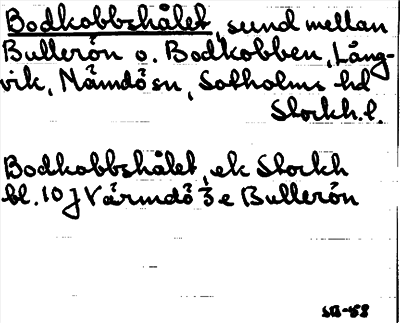 Bodkobbshålet, sund mellan
Bullerön o. Bodkobben, Lång-
vik, Nämdö sn, Sotholms hd
Stockh. l.
Bodkobbshålet, ek Stockh
bl. 10 J Värmdö 3 e Bullerön